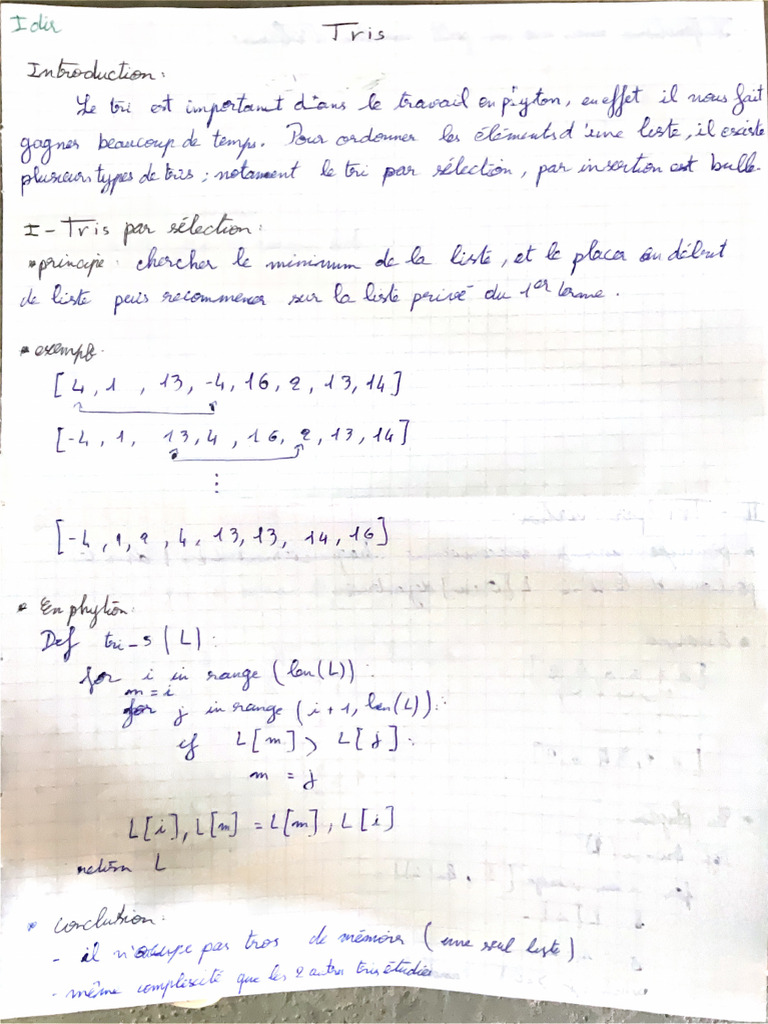 Idir
Tris
Introduction :
Le tri est important dans le travail en pigton, en effet il nous fait
gagner beaucoup de temps. Pour ordonner les éléments d'une liste, il existe
plusieurs types de tris ; notament le tri par sélection, par insertion et bulle.
I - Tris par sélection :
* principe : chercher le minimum de la liste, et le placer au début
de liste puis recommencer sur la liste privé du 1er terme.
* exemple.
[4, 1, 13, -4, 16, 2, 13, 14]
[-4, 1, 13, 4, 16, 2, 13, 14]
⋮
[-4, 1, 2, 4, 13, 13, 14, 16]
* En phyton :
Def tri-s (L) :
for i in range (len(L)) :
m = i
for j in range (i+1, len(L)) :
if L[m] > L[j] :
m = j
L[i], L[m] = L[m], L[i]
return L
* conclusion :
- il n'occupe pas tros de mémoire (une seul liste)
- même complexité que les 2 autres tris étudiés